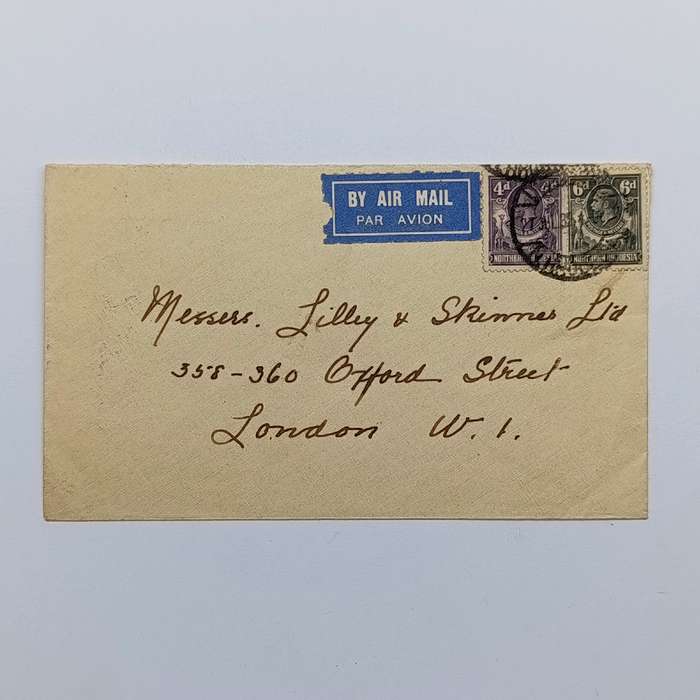 BY AIR MAIL
PAR AVION
4d
NORTHERN
6d 6d
NORTHERN RHODESIA
Messers. Lilley & Skinner Ltd
358-360 Oxford Street
London W. 1.